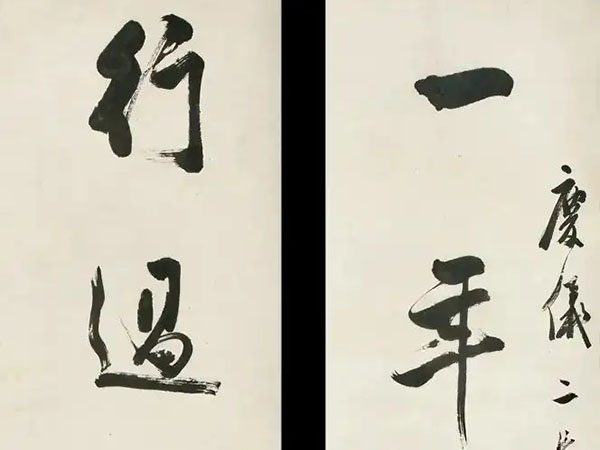 慶儀二
一年
行過